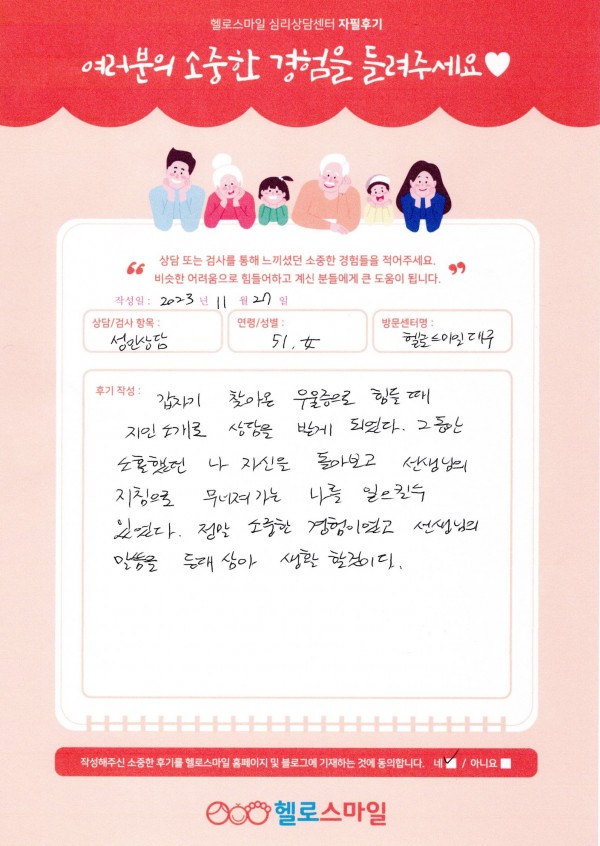 헬로스마일 심리상담센터 자필후기
여러분의 소중한 경험을 들려주세요♥
“ 상담 또는 검사를 통해 느끼셨던 소중한 경험들을 적어주세요.
비슷한 어려움으로 힘들어하고 계신 분들에게 큰 도움이 됩니다. ”
작성일 : 2023 년 11 월 27 일
상담/검사 항목 : 연령/성별 : 방문센터명 :
성인상담 51. 女 헬로스마일대구
후기 작성 : 갑자기 찾아온 우울증으로 힘들 때
지인 소개로 상담을 받게 되였다. 그동안
소홀했던 나 자신을 돌아보고 선생님의
지침으로 무너져가는 나를 일으킬수
있였다. 정말 소중한 경험이였고 선생님의
말씀을 등대 삼아 생활 할것이다.
작성해주신 소중한 후기를 헬로스마일 홈페이지 및 블로그에 기재하는 것에 동의합니다. 네 ✓ / 아니요
헬로스마일